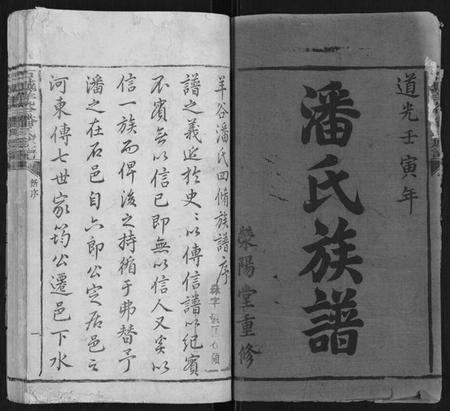 道光壬寅年
潘氏族譜
滎陽堂重修
羊谷潘氏四脩族譜序
譜之義近於史史以傳信譜以紀實
不實無以信已即無以信人又奚以
信一族而俾後之持循于弗替予
潘之在石邑自六郎公定居邑之
河東傳七世家筠公遷邑下水